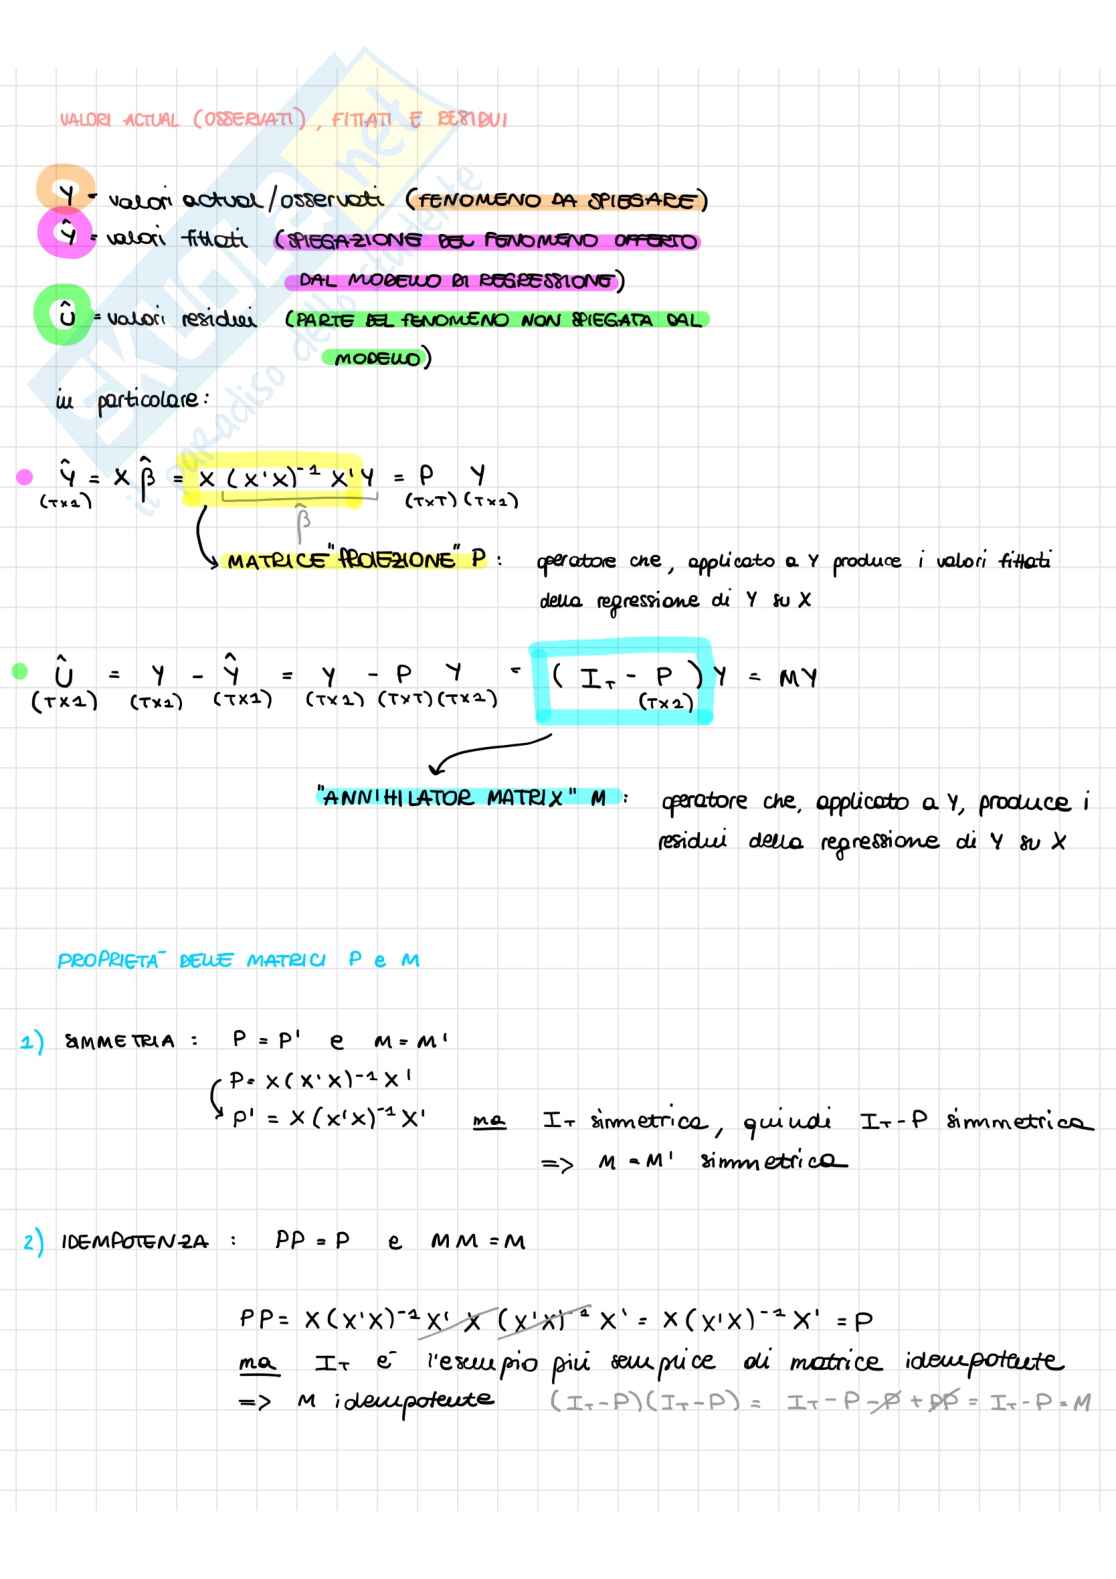 VALORI ACTUAL (OSSERVATI), FITTATI E RESIDUI
Y = valori actual/osservati (FENOMENO DA SPIEGARE)
Ŷ = valori fittati (SPIEGAZIONE DEL FENOMENO OFFERTO
DAL MODELLO DI REGRESSIONE)
Û = valori residui (PARTE DEL FENOMENO NON SPIEGATA DAL
MODELLO)
in particolare:
Ŷ = X β̂ = X (X'X)⁻¹ X'Y = P Y
(T×1) (T×T) (T×1)
β̂
MATRICE "PROIEZIONE" P : operatore che, applicato a Y produce i valori fittati
della regressione di Y su X
Û = Y - Ŷ = Y - P Y = (I_T - P) Y = MY
(T×1) (T×1) (T×1) (T×1) (T×T) (T×1) (T×1)
"ANNIHILATOR MATRIX" M : operatore che, applicato a Y, produce i
residui della regressione di Y su X
PROPRIETÀ DELLE MATRICI P e M
1) SIMMETRIA : P = P' e M = M'
P = X(X'X)⁻¹X'
P' = X(X'X)⁻¹X' ma I_T simmetrica, quindi I_T - P simmetrica
=> M = M' simmetrica
2) IDEMPOTENZA : PP = P e MM = M
PP = X(X'X)⁻¹X' X (X'X)⁻¹ X' = X(X'X)⁻¹X' = P
ma I_T è l'esempio più semplice di matrice idempotente
=> M idempotente (I_T-P)(I_T-P) = I_T-P-P+PP = I_T-P = M
SKUOLA.net
il paradiso dello studente